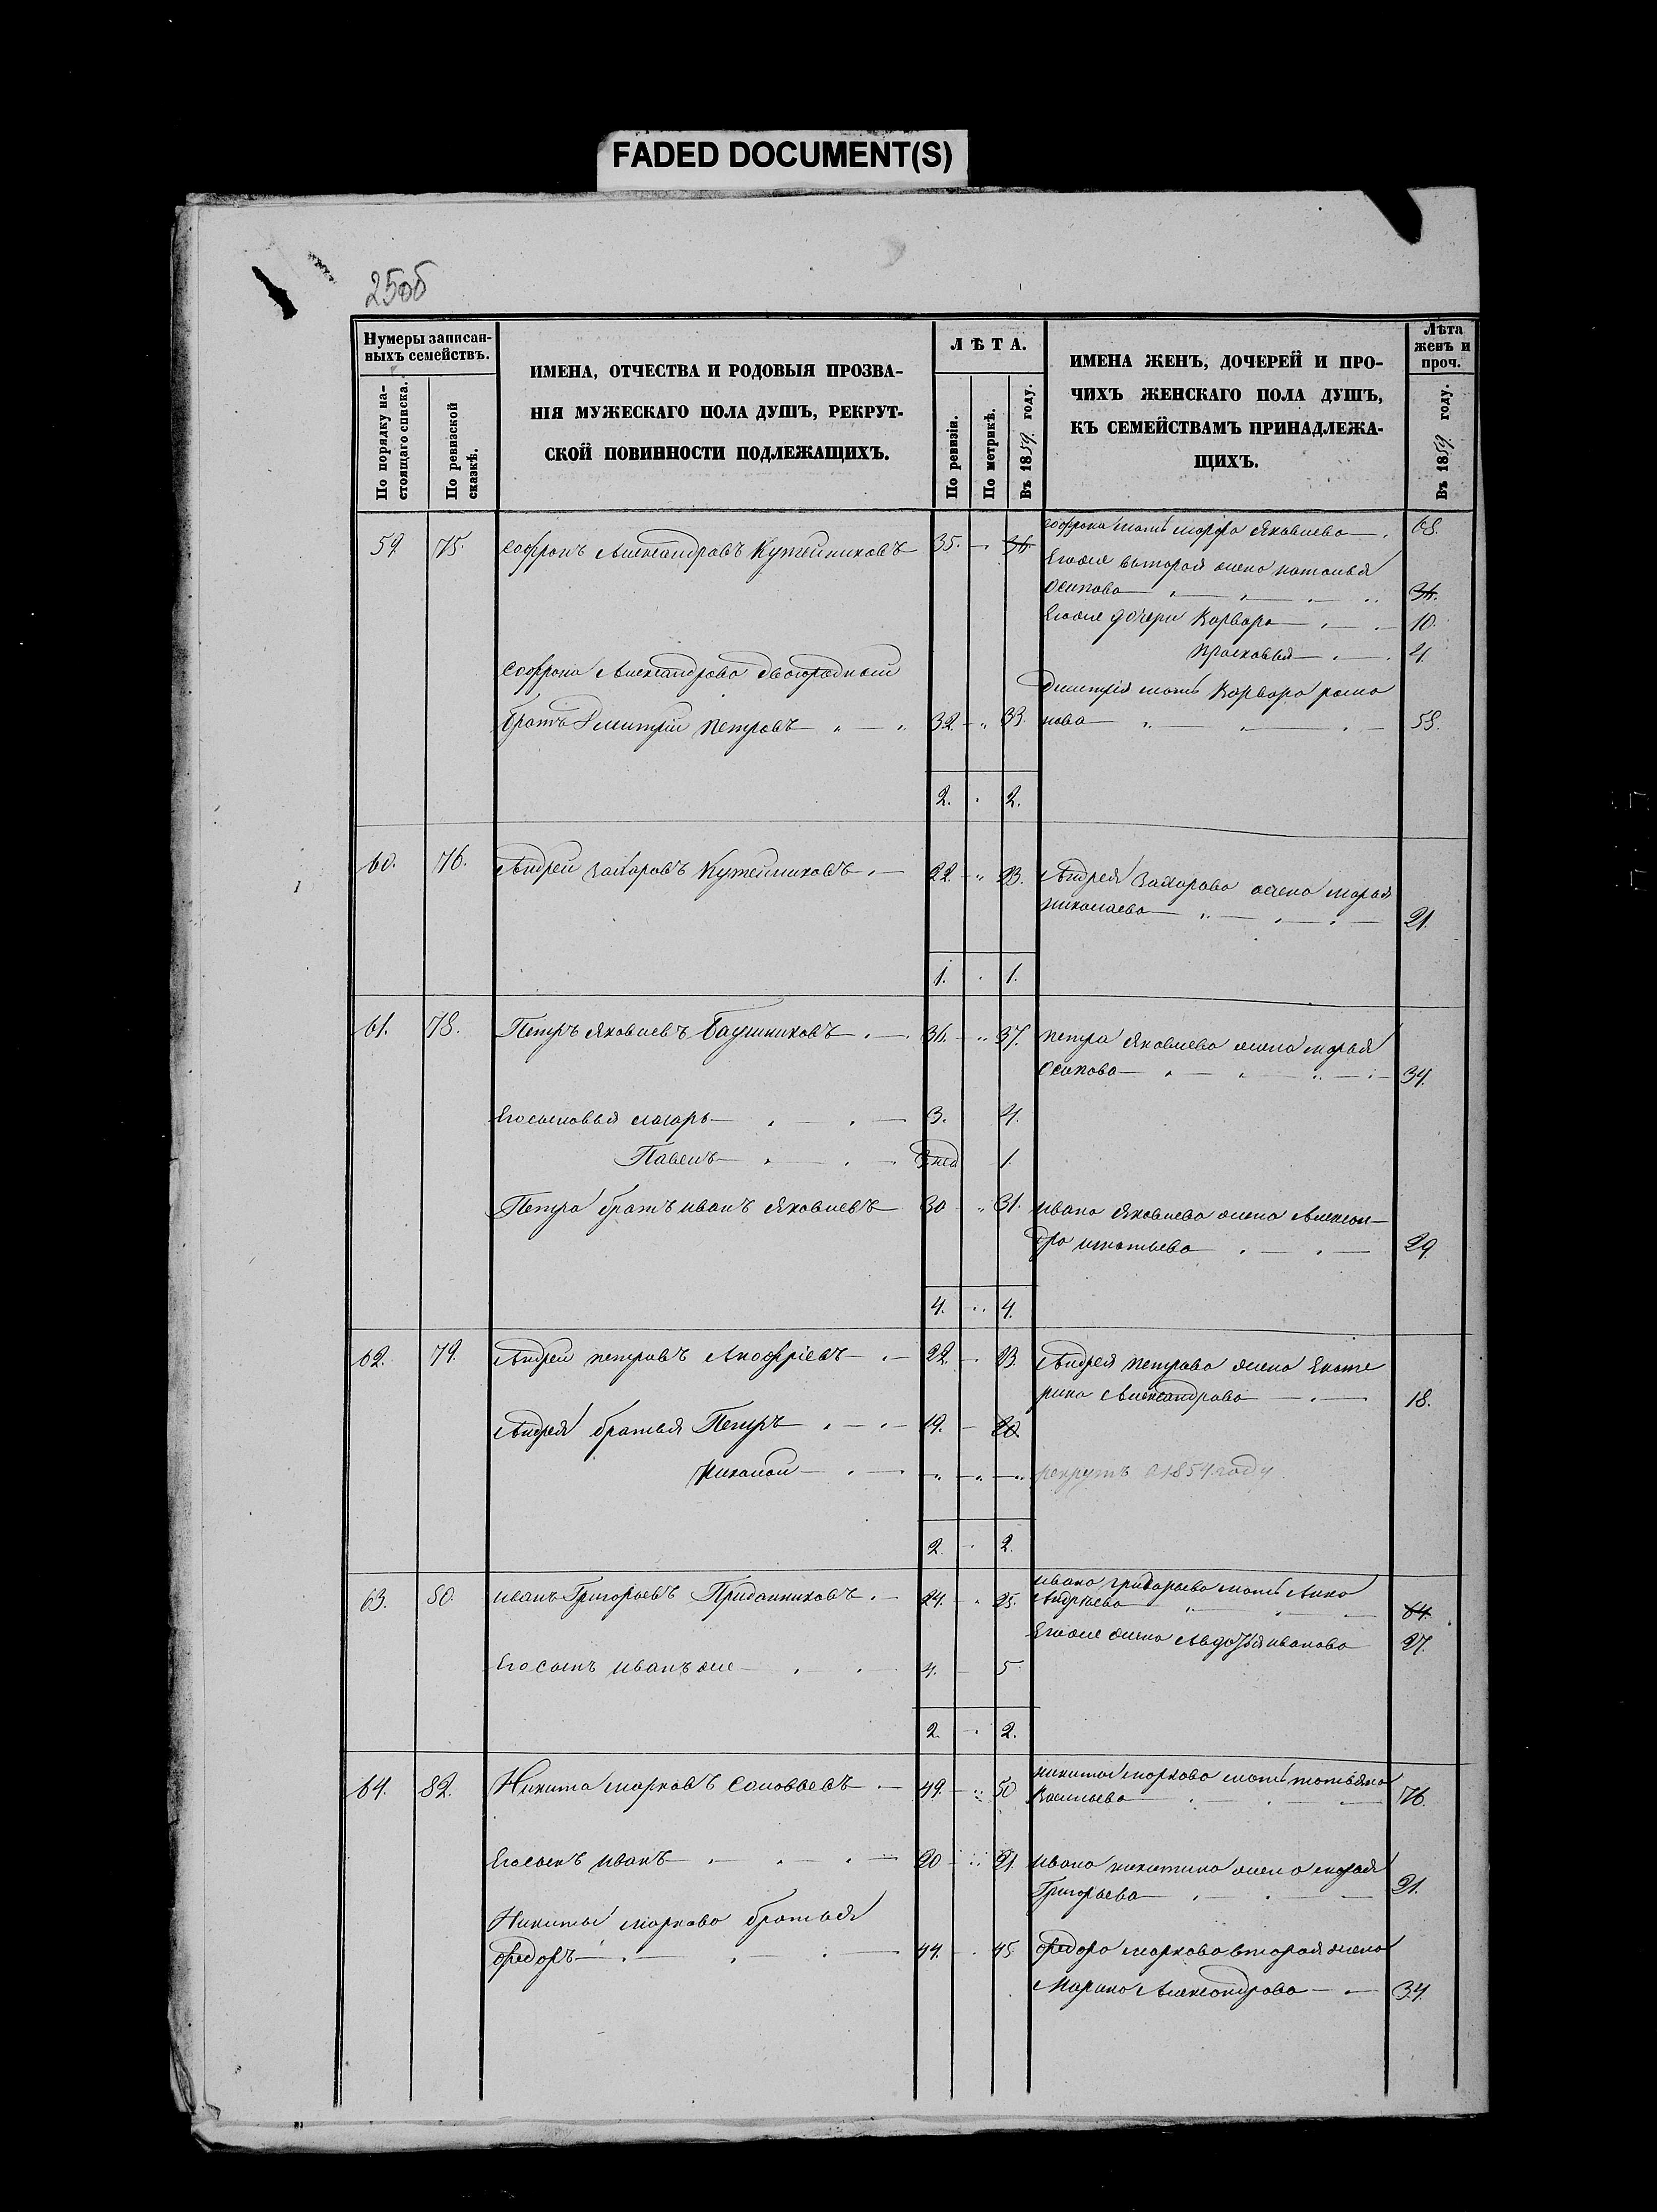 FADED DOCUMENT(S)
25об
Нумеры записан-
ныхъ семействъ.
По порядку на-
стоящаго списка.
По ревизской
сказкѣ.
ИМЕНА, ОТЧЕСТВА И РОДОВЫЯ ПРОЗВА-
НІЯ МУЖЕСКАГО ПОЛА ДУШЪ, РЕКРУТ-
СКОЙ ПОВИННОСТИ ПОДЛЕЖАЩИХЪ.
ЛѢТА.
По ревизіи.
По метрикѣ.
Въ 1859 году.
ИМЕНА ЖЕНЪ, ДОЧЕРЕЙ И ПРО-
ЧИХЪ ЖЕНСКАГО ПОЛА ДУШЪ,
КЪ СЕМЕЙСТВАМЪ ПРИНАДЛЕЖА-
ЩИХЪ.
Лѣта
женъ и
проч.
Въ 1859 году.
59. 75. Софронъ Александровъ Кутейниковъ 35. 36. Софрона мать Марфа Яковлева 68.
Егоже вторая жена Наталья
Осипова 36.
Егоже дочери Варвара 10.
Прасковья 4.
Софрона Александрова двоюродный Дмитрія мать Варвара Рома
братъ Дмитрій Петровъ 32. 33. нова 58.
2. 2.
60. 76. Андрей Захаровъ Кутейниковъ 22. 23. Андрея Захарова жена Марья
Николаева 21.
1. 1.
61. 78. Петръ Яковлевъ Баушниковъ 36. 37. Петра Яковлева жена Марья
Осипова 34.
Его сыновья Лазарь 3. 4.
Павелъ 3 нед 1.
Петра братъ Иванъ Яковлевъ 30 31. Ивана Яковлева жена Алексан-
дра Игнатьева 29.
4. 4.
62. 79. Андрей Петровъ Анофріевъ 22. 23. Андрея Петрова жена Екате
рина Александрова 18.
Андрея братья Петръ 19. 20.
Николай рекрутъ в 1854 году
2 2.
63. 80. Иванъ Григорьевъ Приданниковъ 24. 25. Ивана Григорьева мать Анна
Андреева 64.
Егоже жена Авдотья Иванова 27.
Его сынъ Иванъ же 4. 5
2. 2.
64. 82. Никита Марковъ Саловьевъ 49. 50 Никиты Маркова мать Татьяна
Васильева 76.
Его сынъ Иванъ 20 21. Ивана Никитина жена Марья
Григорьева 21.
Никиты Маркова братья
Федоръ 44. 45. Федора Маркова вторая жена
Марина Александрова 34.